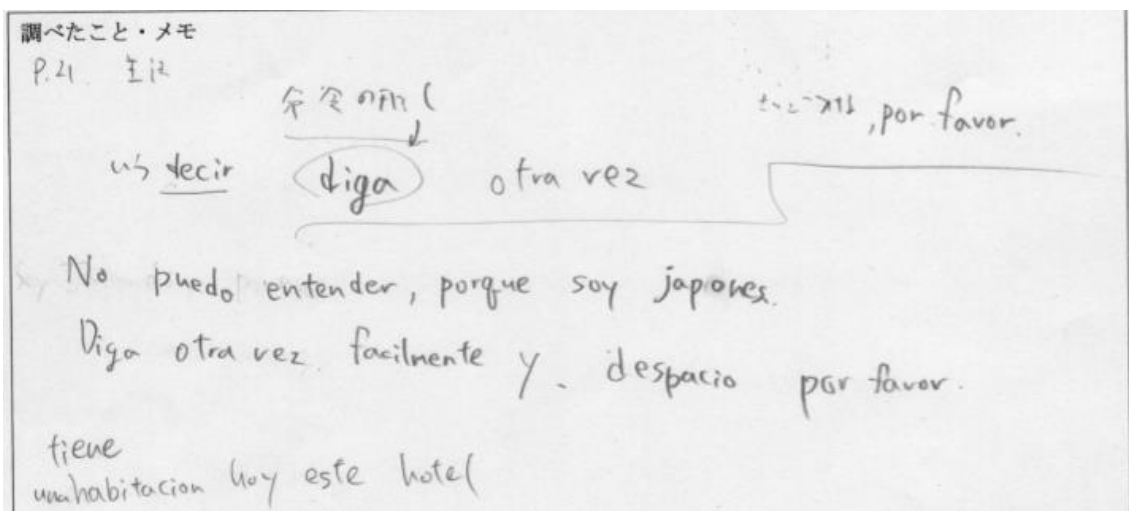 調べたこと・メモ
P.21
命令の所
, por favor.
いう decir diga otra vez
No puedo entender, porque soy japones.
Diga otra vez facilmente y despacio por favor.
tiene
una habitacion hoy este hotel